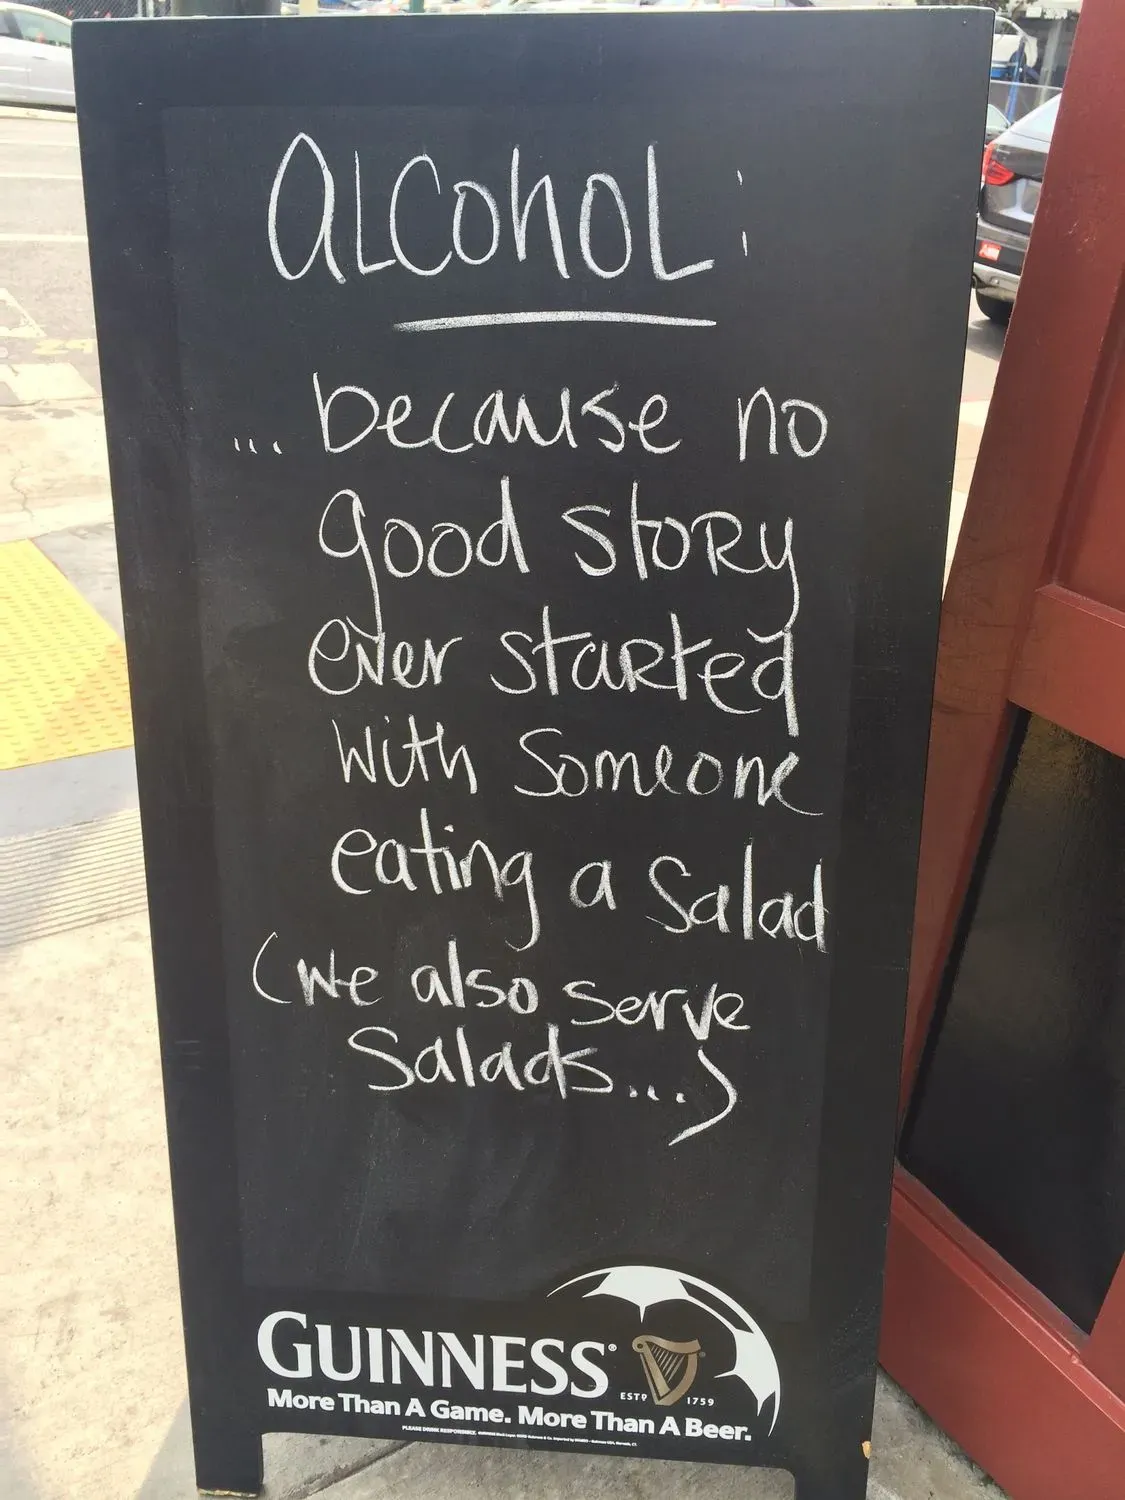 aLCohoL:
... because no
good stoRy
ever staRted
with someone
eating a salad
(we also serve
salads...)
GUINNESS®
ESTD 1759
More Than A Game. More Than A Beer.
PLEASE DRINK RESPONSIBLY.